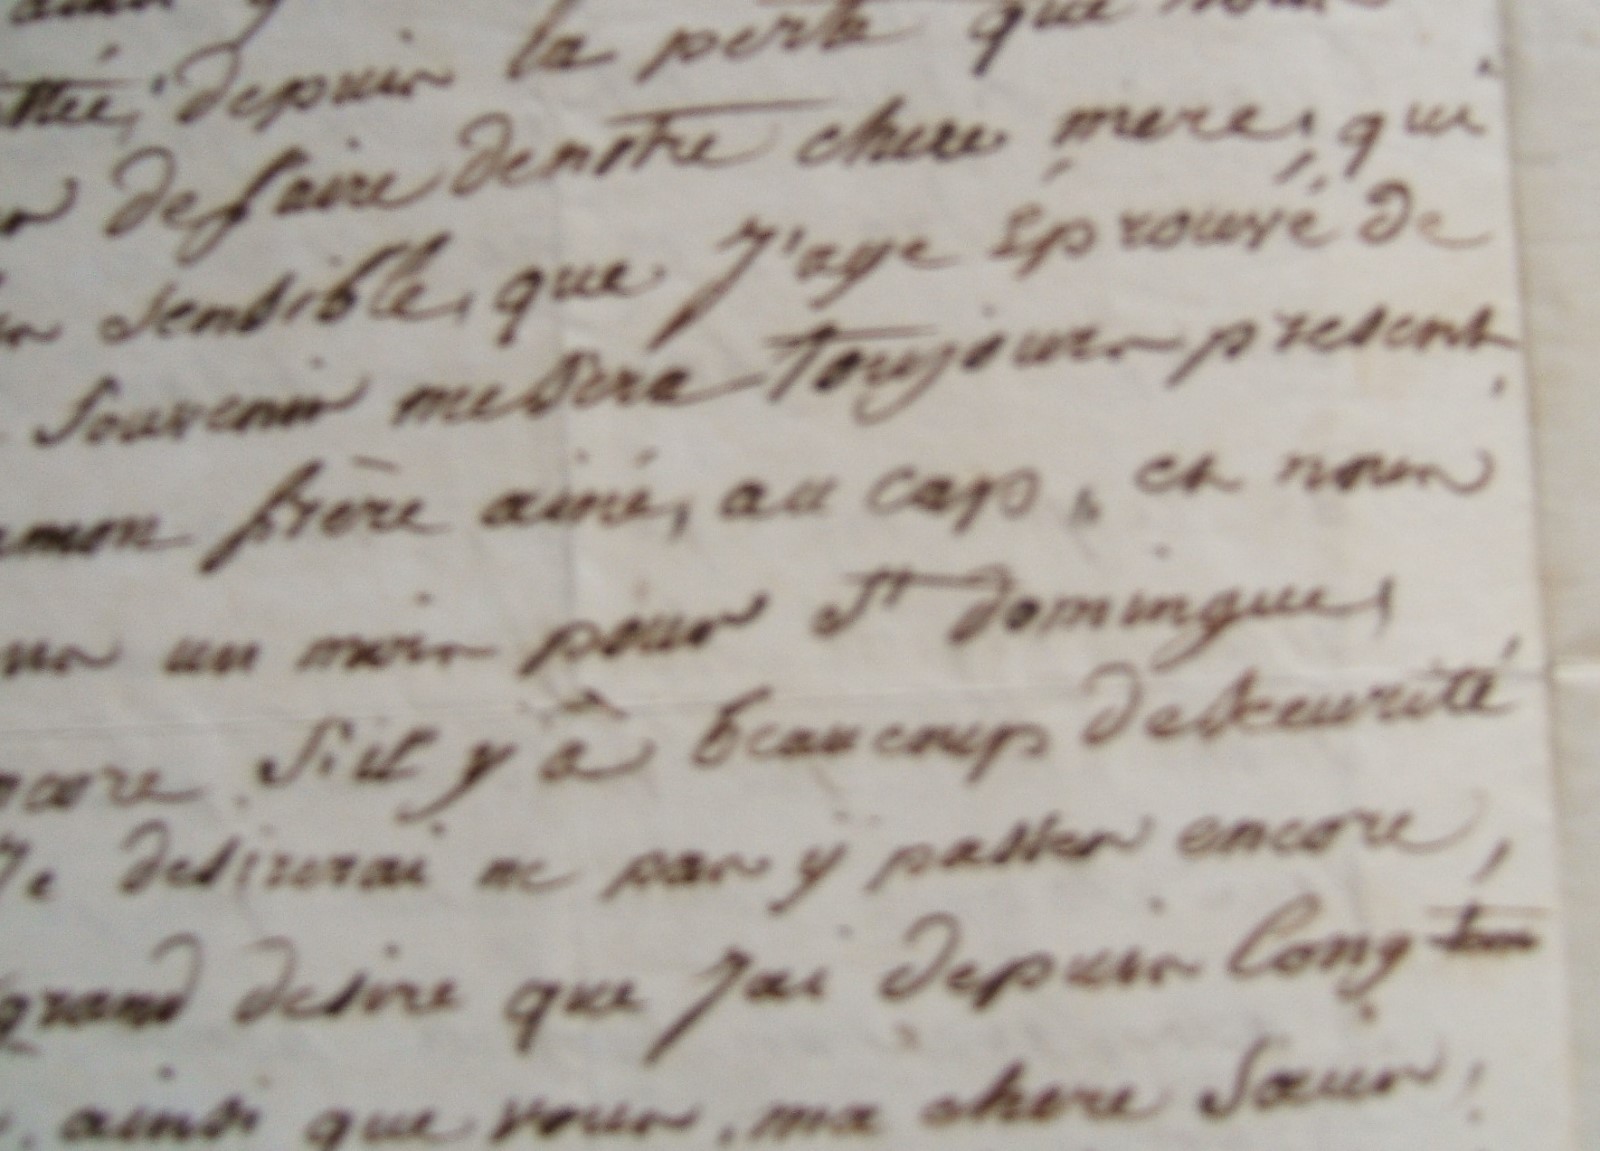 depuis la perte que nous
defaire denotre chere mere, qui
sensible, que J'aye éprouvé de
Souvenir mesera toujours present
mon frère ainé, au cap, et nous
un mois pour St domingue,
ncore. S'il y â beaucoup deseeurité
Je desirerai ne pas y passer encore,
grand desire que J'ai depuis longtems
, ainsi que vous, ma chere Sœur,